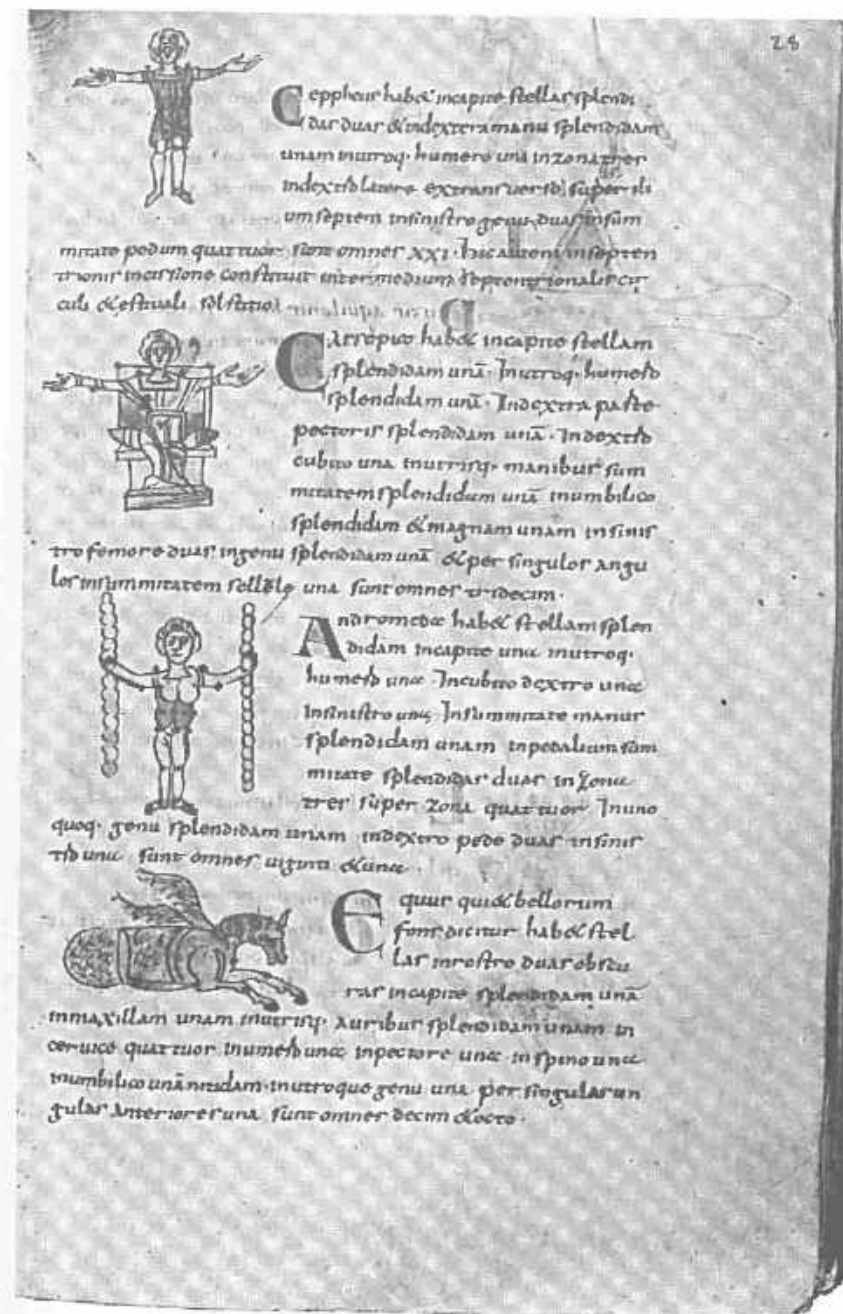 28
Ceppheus hab& incapite stellas splendi
das duas & indextera manu splendidam
unam inutroq· humero una inzona tres
indextro latere extransuerso super ili
um septem insinistro genu duas insum
mitate pedum quattuor sunt omnes xxi· hicautem insepten
trionis incisione constituit intermedium septentrionalis cir
culi & estiuali solstitio
Cassiopia hab& incapite stellam
splendidam unā· Inutroq· humero
splendidam unā· Indextra parte
pectoris splendidam unā· Indextro
cubito una inutrisq· manibus sum
mitatem splendidam unā inumbilico
splendidam & magnam unam insinis
tro femore duas ingenu splendidam unā & per singulos angu
los insummitatem sellule una sunt omnes tridecim·
Andromeda hab& stellam splen
didam incapite una inutroq·
humero una Incubito dextro una
insinistro una Insummitate manus
splendidam unam inpedalium sum
mitate splendidas duas inzona
tres super zona quattuor Inuno
quoq· genu splendidam unam indextro pede duas insinis
tro una sunt omnes uiginti & una·
Equus qui & bellorum
fons dicitur hab& stel
las inrostro duas obscu
ras incapite splendidam unā
inmaxillam unam inutrisq· auribus splendidam unam in
ceruice quattuor inumero una inpectore una inspino una
inumbilico unā nitidam· inutroque genu una per singulas un
gulas anteriores una sunt omnes decim & octo·